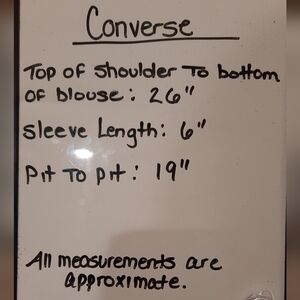 Converse
Top of Shoulder To bottom
of blouse: 26"
Sleeve Length: 6"
Pit To pit: 19"
All measurements are
approximate.